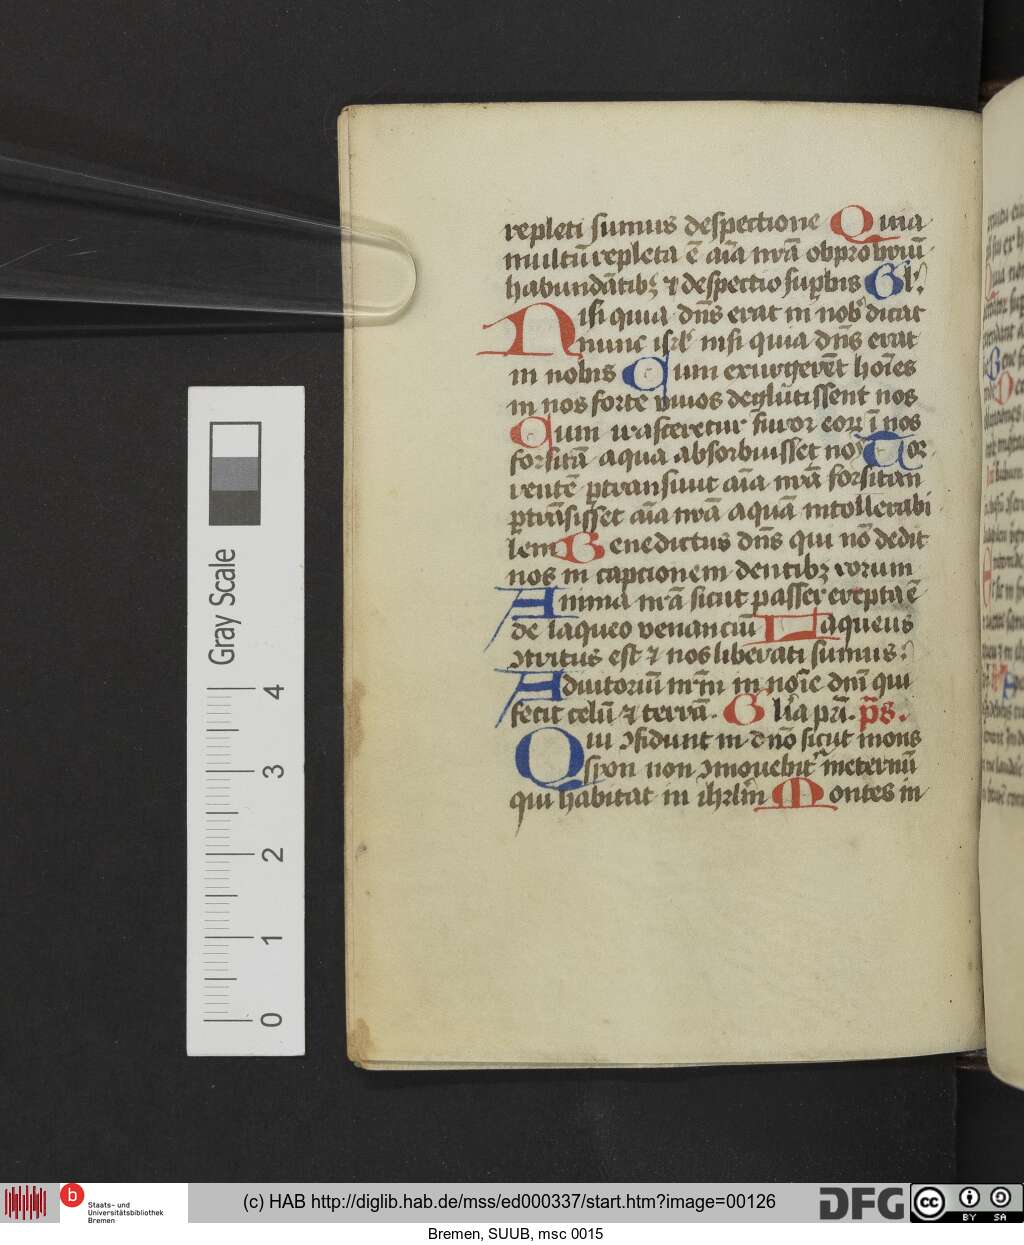 repleti sumus despectione Quia
multū repleta ē aīa nrā obprobriū
habundātibꝫ ⁊ despectio supbis Gl'
Nisi quia dn̄s erat in nob' dicat
nunc isrl' nisi quia dn̄s erat
in nobis Cum exurgerēt hoīes
in nos forte viuos deglutissent nos
Cum irasceretur furor eoꝝ ī nos
forsitā aqua absorbuisset nos Tor
rentē ꝑtransiuit aīa nrā forsitan
ꝑtrāsisset aīa nrā aquā intollerabi
lem Benedictus dn̄s qui nō dedit
nos in captionem dentibꝫ eorum
Anima nrā sicut passer erepta ē
de laqueo venanciū Laqueus
ꝯtritus est ⁊ nos liberati sumus
Adiutoriū nrm̄ in noīe dn̄i qui
fecit celū ⁊ terrā. Glīa pri. ps.
Qui ꝯfidunt in dn̄o sicut mons
syon non ꝯmouebit' ineternū
qui habitat in ihrlm̄ Montes in
Gray Scale
4
3
2
1
0
b
Staats- und
Universitätsbibliothek
Bremen
(c) HAB http://diglib.hab.de/mss/ed000337/start.htm?image=00126
DFG
cc
BY SA
Bremen, SUUB, msc 0015